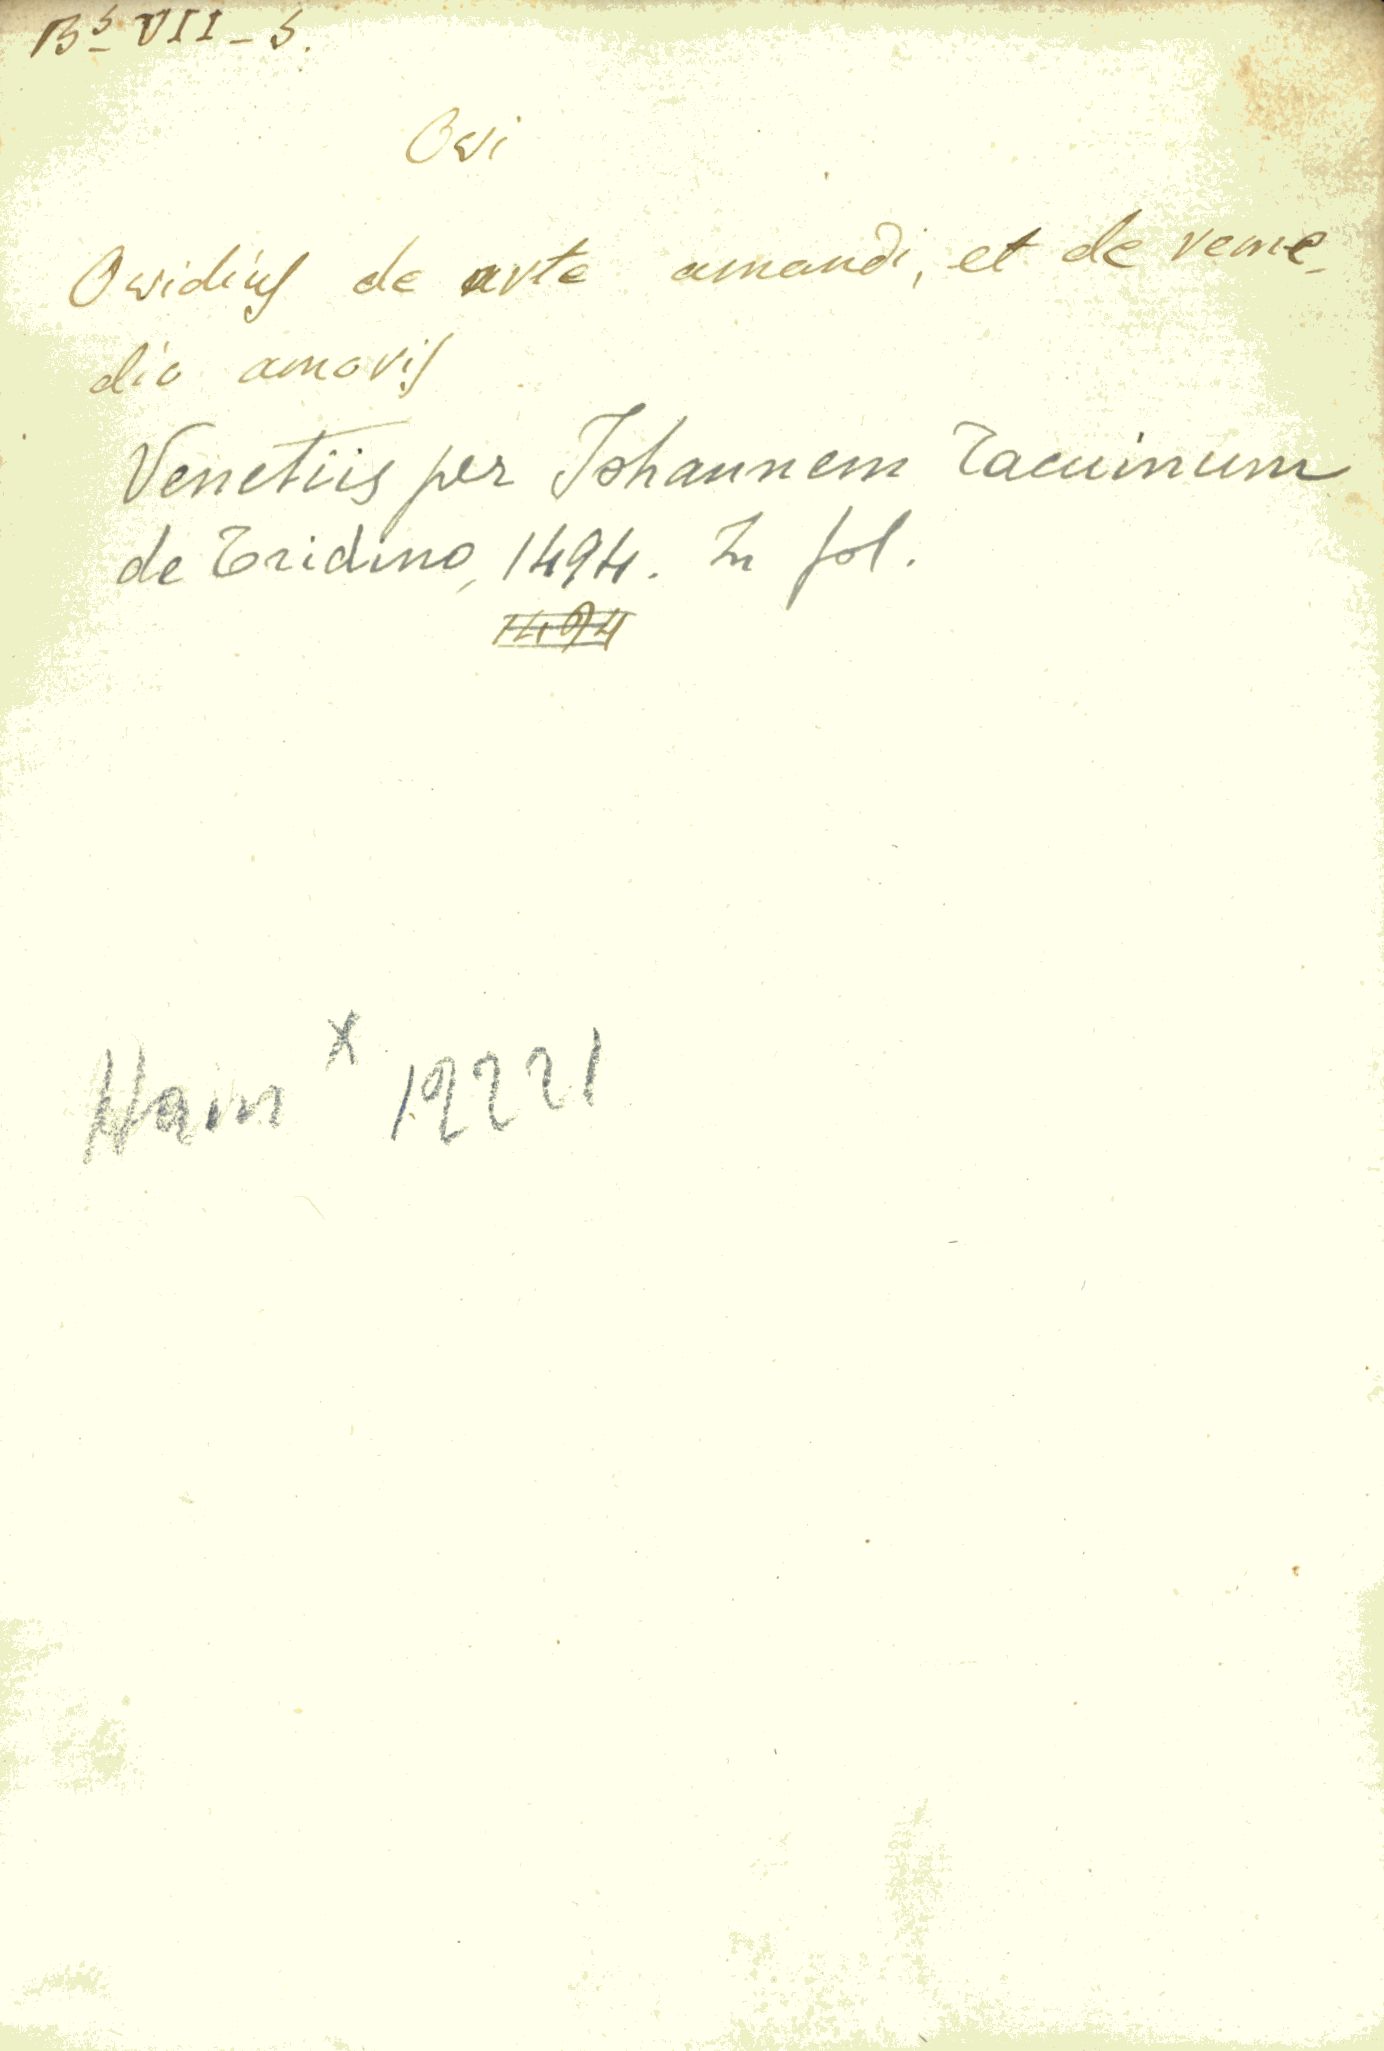 Bs VII - S.
Ovi
Ovidius de arte amandi, et de reme-
dio amoris
Venetiis per Johannem Tacuinum
de Tridino, 1494. In fol.
1494
Hain * 12221